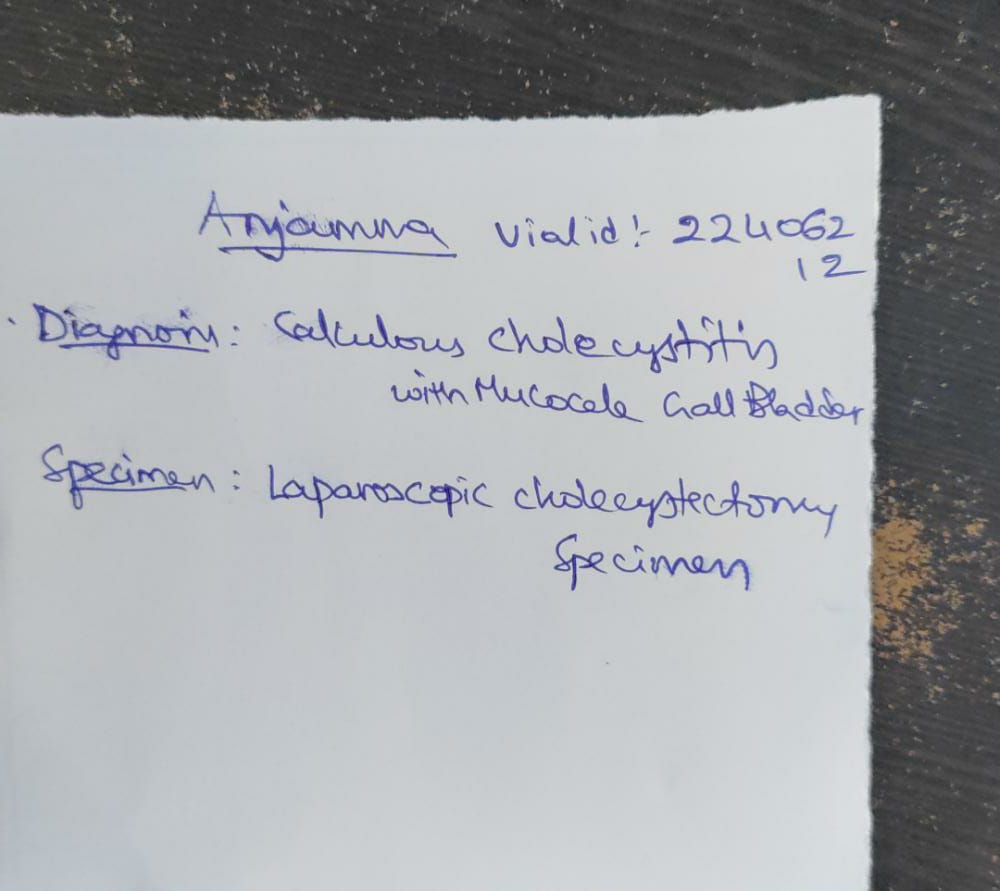 Anjamma Vial id:- 224062
12
Diagnosis: Calculous cholecystitis
with Mucocele Gall Bladder
Specimen: Laparoscopic cholecystectomy
Specimen